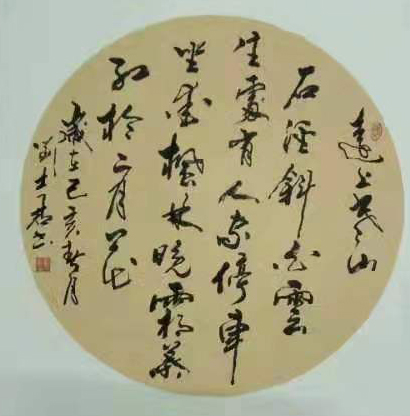 遠上寒山
石徑斜白雲
生處有人家停車
坐愛楓林晚霜葉
紅於二月花
歲在己亥月
劉士書